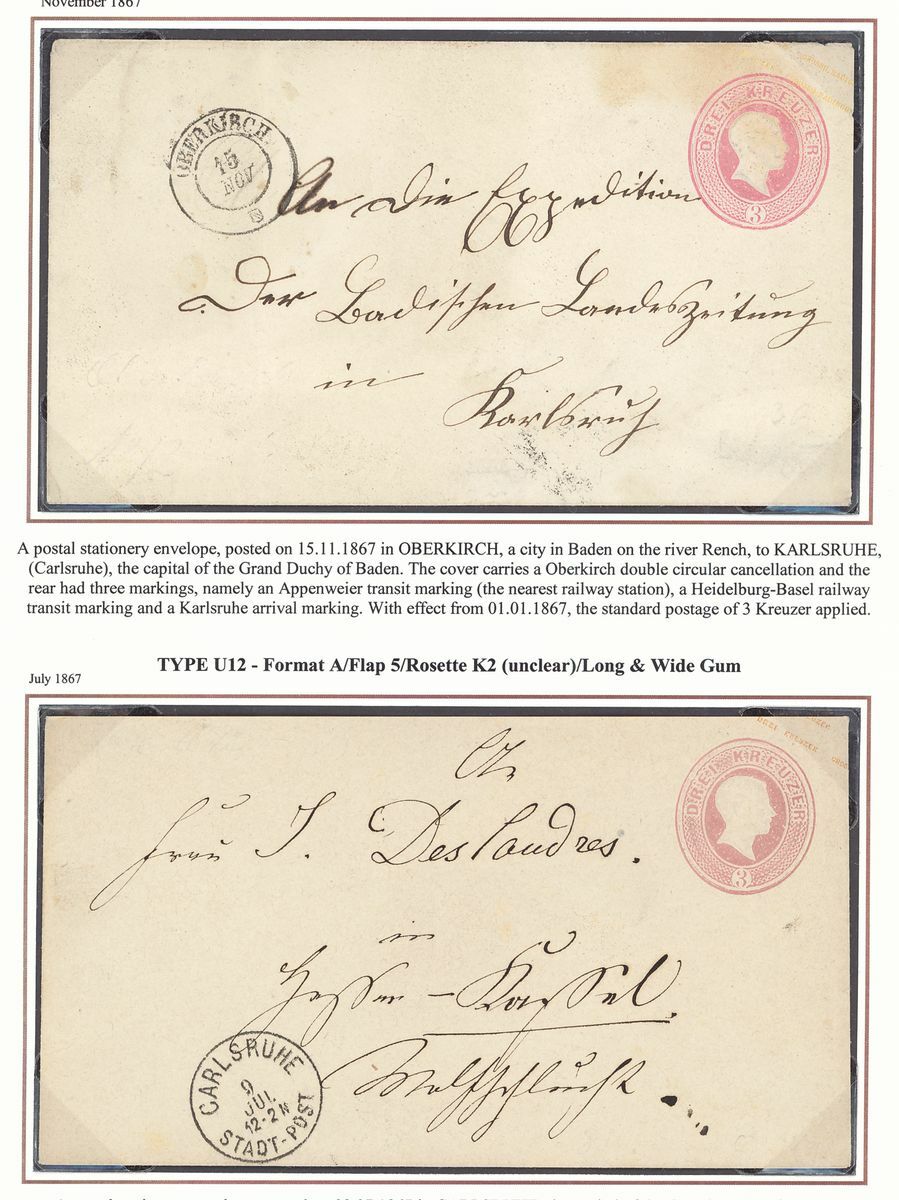 November 1867
OBERKIRCH.
15
NOV
DREI KREUZER
3
An die Expedition
Der Badischen Landeszeitung
in
Karlsruh
A postal stationery envelope, posted on 15.11.1867 in OBERKIRCH, a city in Baden on the river Rench, to KARLSRUHE,
(Carlsruhe), the capital of the Grand Duchy of Baden. The cover carries a Oberkirch double circular cancellation and the
rear had three markings, namely an Appenweier transit marking (the nearest railway station), a Heidelburg-Basel railway
transit marking and a Karlsruhe arrival marking. With effect from 01.01.1867, the standard postage of 3 Kreuzer applied.
TYPE U12 - Format A/Flap 5/Rosette K2 (unclear)/Long & Wide Gum
July 1867
DREI KREUZER
DREI KREUZER
3
An
Frau J. Deslandres.
in
Hessen-Kassel.
Wolfsschlucht
CARLSRUHE
9
JUL
12-2N
STADT-POST